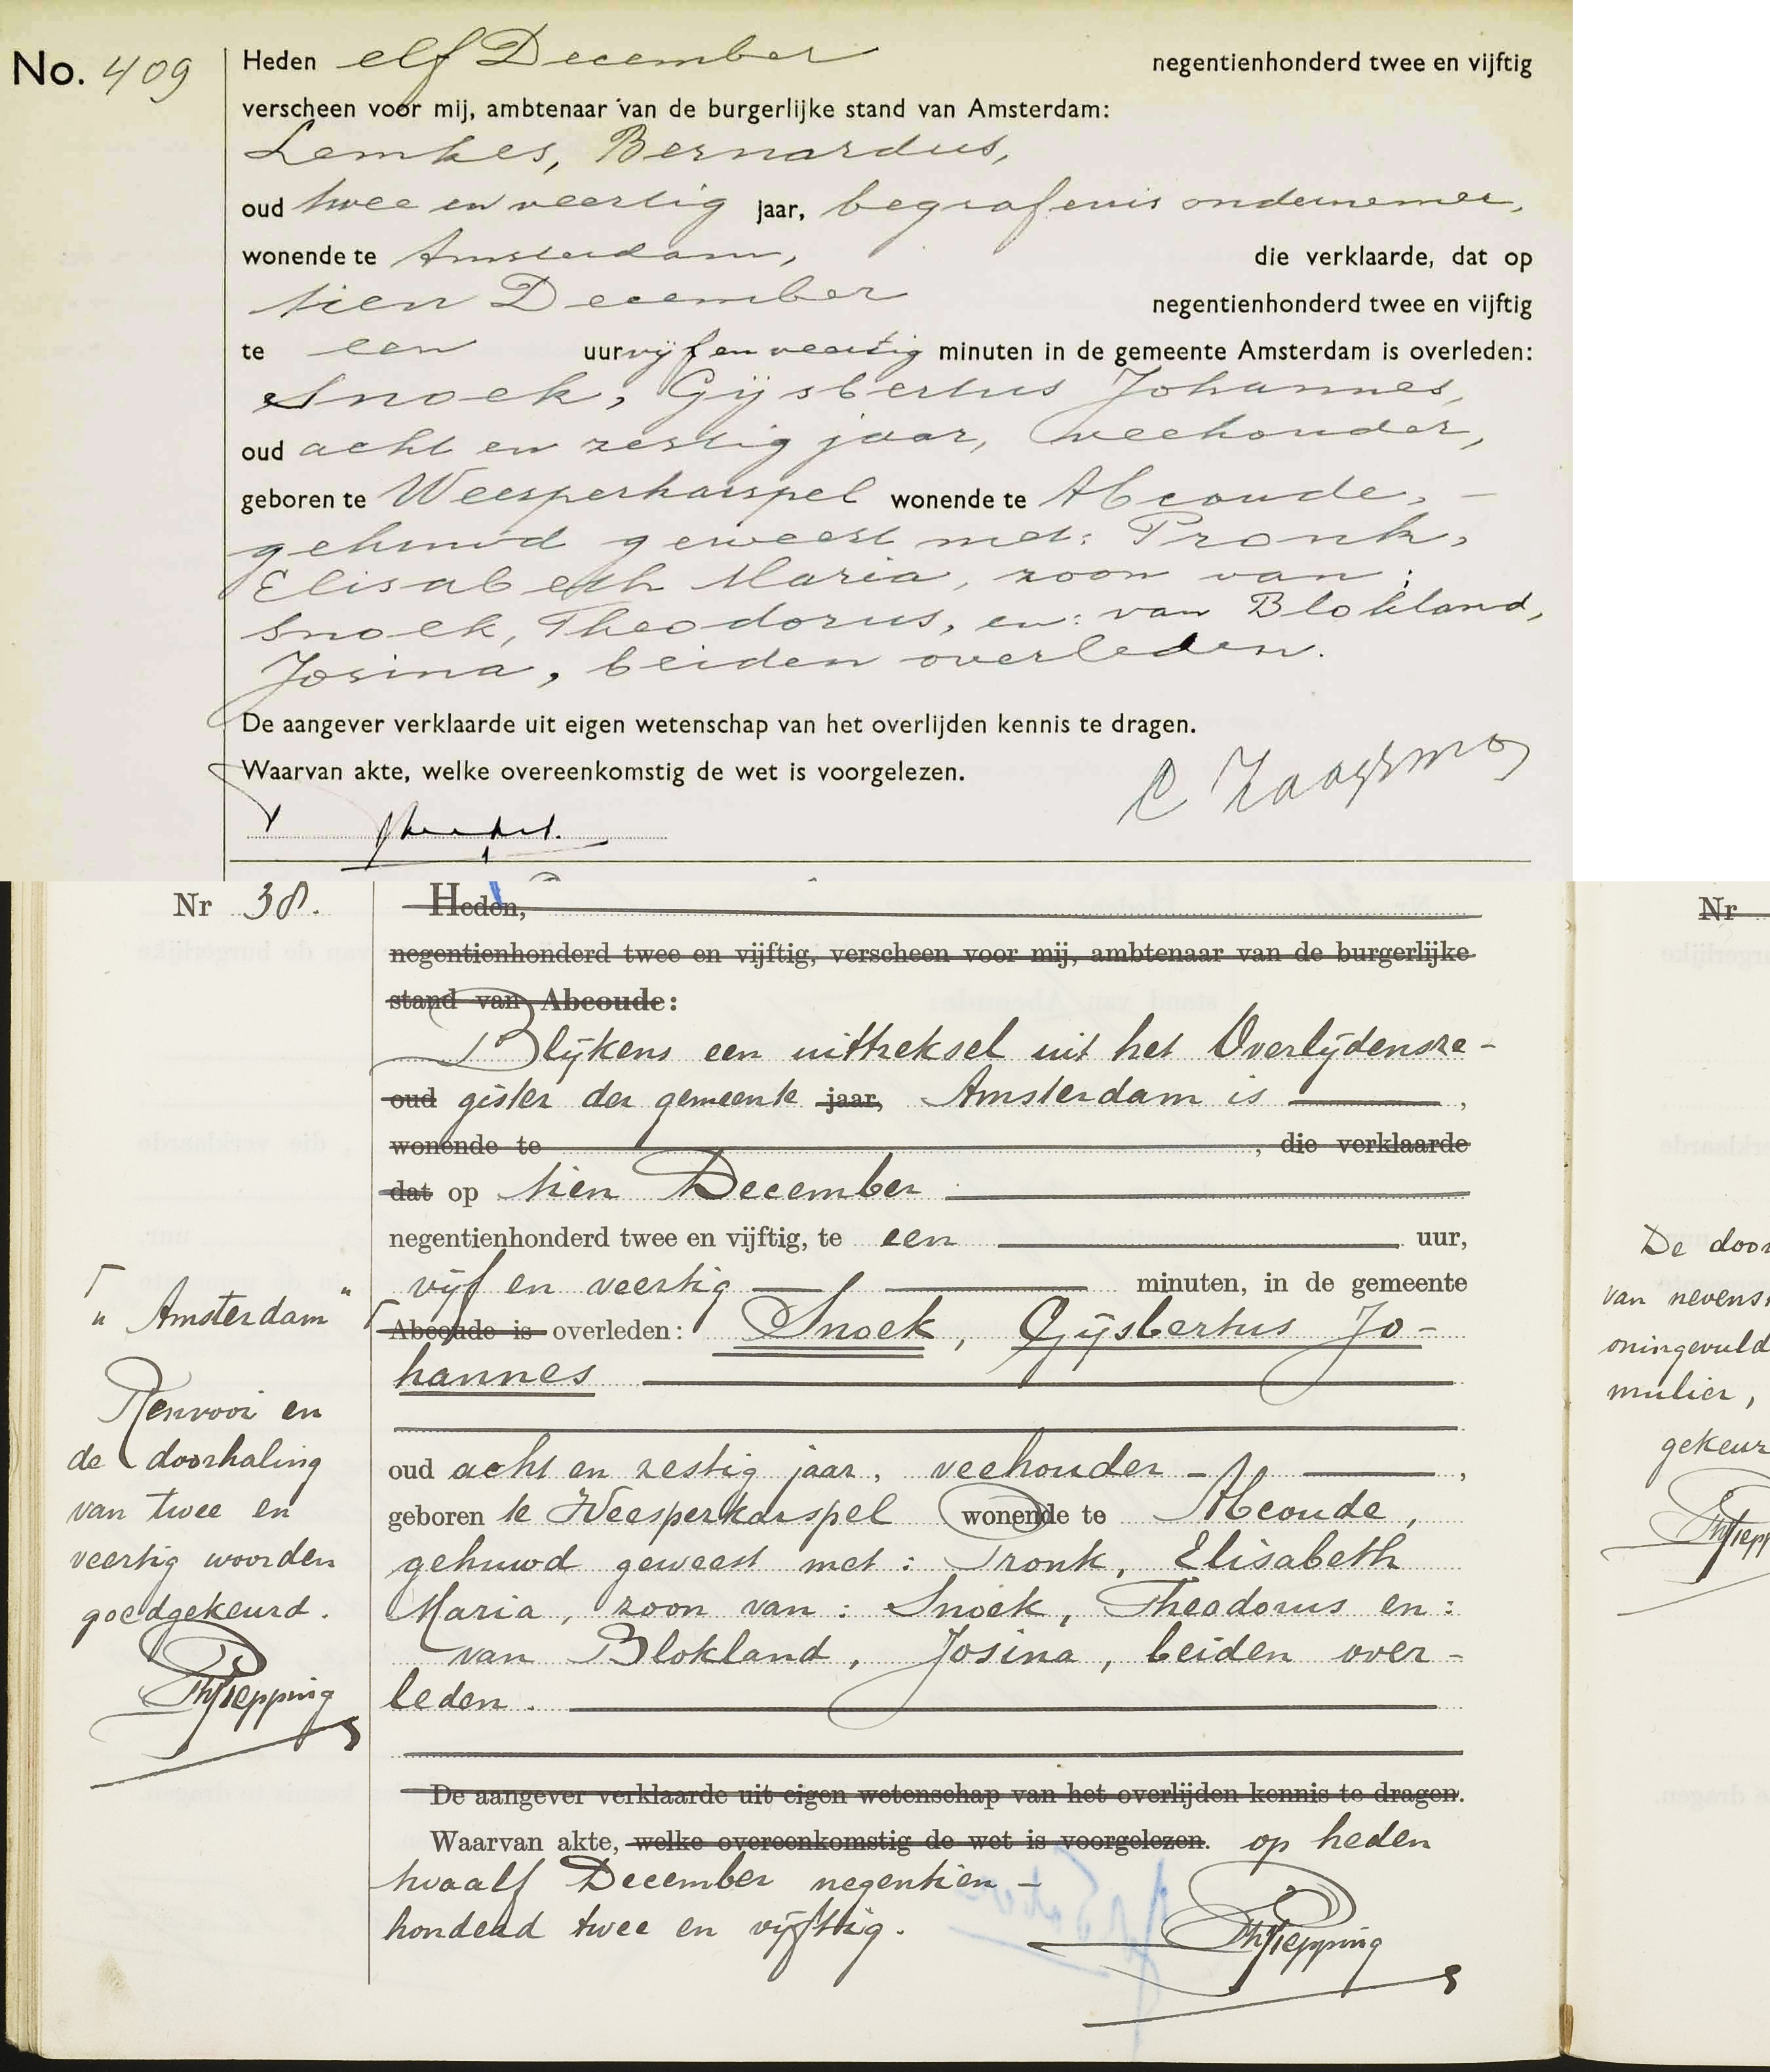 No. 409
Heden elf December negentienhonderd twee en vijftig
verscheen voor mij, ambtenaar van de burgerlijke stand van Amsterdam:
Lemkes, Bernardus,
oud twee en veertig jaar, begrafenis ondernemer,
wonende te Amsterdam, die verklaarde, dat op
tien December negentienhonderd twee en vijftig
te een uur vijf en veertig minuten in de gemeente Amsterdam is overleden:
Snoek, Gijsbertus Johannes,
oud acht en zestig jaar, veehouder,
geboren te Weesperkarspel wonende te Abcoude, -
gehuwd geweest met: Pronk,
Elisabeth Maria, zoon van:
Snoek, Theodorus, en: van Blokland,
Josina, beiden overleden.
De aangever verklaarde uit eigen wetenschap van het overlijden kennis te dragen.
Waarvan akte, welke overeenkomstig de wet is voorgelezen.
Nr 38.
Heden,
negentienhonderd twee en vijftig, verscheen voor mij, ambtenaar van de burgerlijke
stand van Abcoude:
Blijkens een uittreksel uit het Overlijdensre-
oud gister der gemeente jaar, Amsterdam is ,
wonende te , die verklaarde
dat op tien December
negentienhonderd twee en vijftig, te een uur,
vijf en veertig minuten, in de gemeente
Abcoude is overleden: Snoek, Gijsbertus Jo-
hannes
oud acht en zestig jaar, veehouder - ,
geboren te Weesperkarspel wonende te Abcoude,
gehuwd geweest met: Pronk, Elisabeth
Maria, zoon van: Snoek, Theodorus en:
van Blokland, Josina, beiden over-
leden.
De aangever verklaarde uit eigen wetenschap van het overlijden kennis te dragen.
Waarvan akte, welke overeenkomstig de wet is voorgelezen. op heden
twaalf December negentien-
honderd twee en vijftig.
ThJiepping
"Amsterdam"
Renvooi en
de doorhaling
van twee en
veertig woorden
goedgekeurd.
ThJiepping
Nr
De door
van nevens
oningevuld
mulier,
gekeur